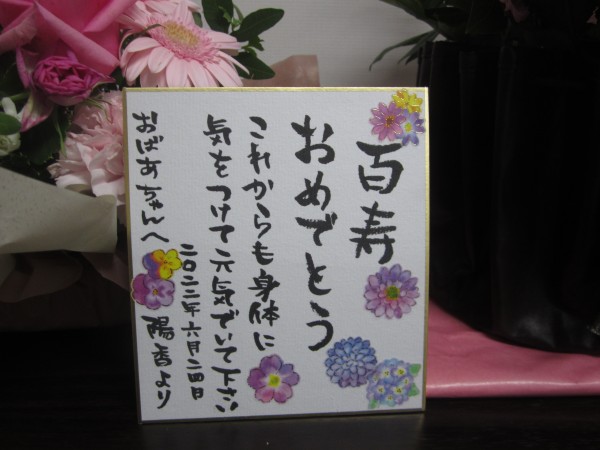 百寿
おめでとう
これからも身体に
気をつけて元気でいて下さい
二〇二二年六月二四日
おばあちゃんへ
陽香より